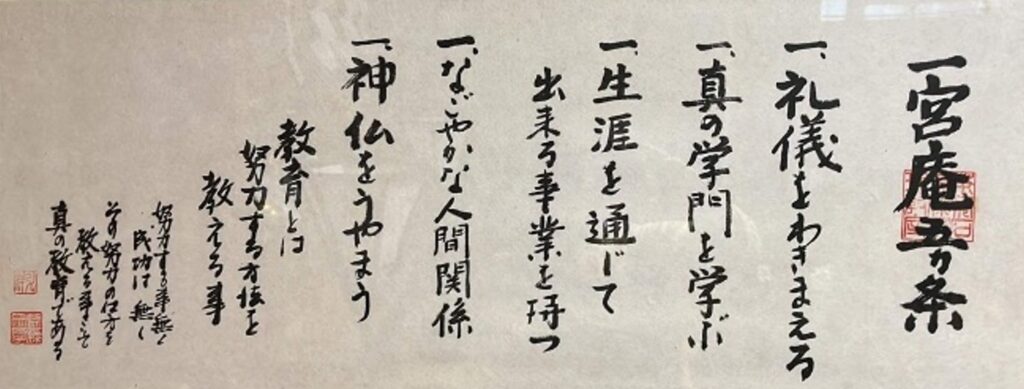 一宮庵五カ条
一、礼儀をわきまえる
一、真の学門を学ぶ
一、生涯を通じて
出来る事業を持つ
一、なごやかな人間関係
一、神仏をうやまう
教育とは
努力する方法を
教える事
努力する事無く
成功は無く
その努力の仕方を
教える事こそ
真の教育である